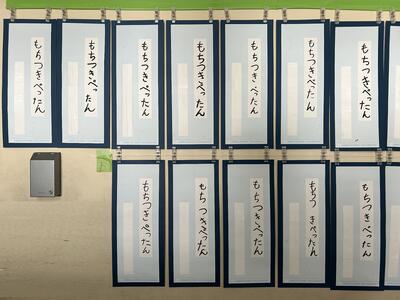 もちつきぺったん
もちつきぺったん
もちつきぺったん
もちつきぺったん
もちつきぺったん
もちつきぺったん
もちつきぺったん
もちつきぺったん
もちつきぺったん
もちつきぺったん
もちつきぺったん
もちつきぺったん